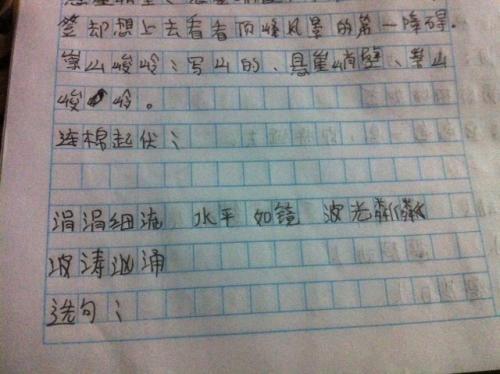 却想上去看看顶峰风景的第一障碍.
崇山峻岭：写山的、悬崖峭壁、崇山
峻岭。
连棉起伏：
涓涓细流 水平如镜 波光粼粼
波涛汹涌
选句：